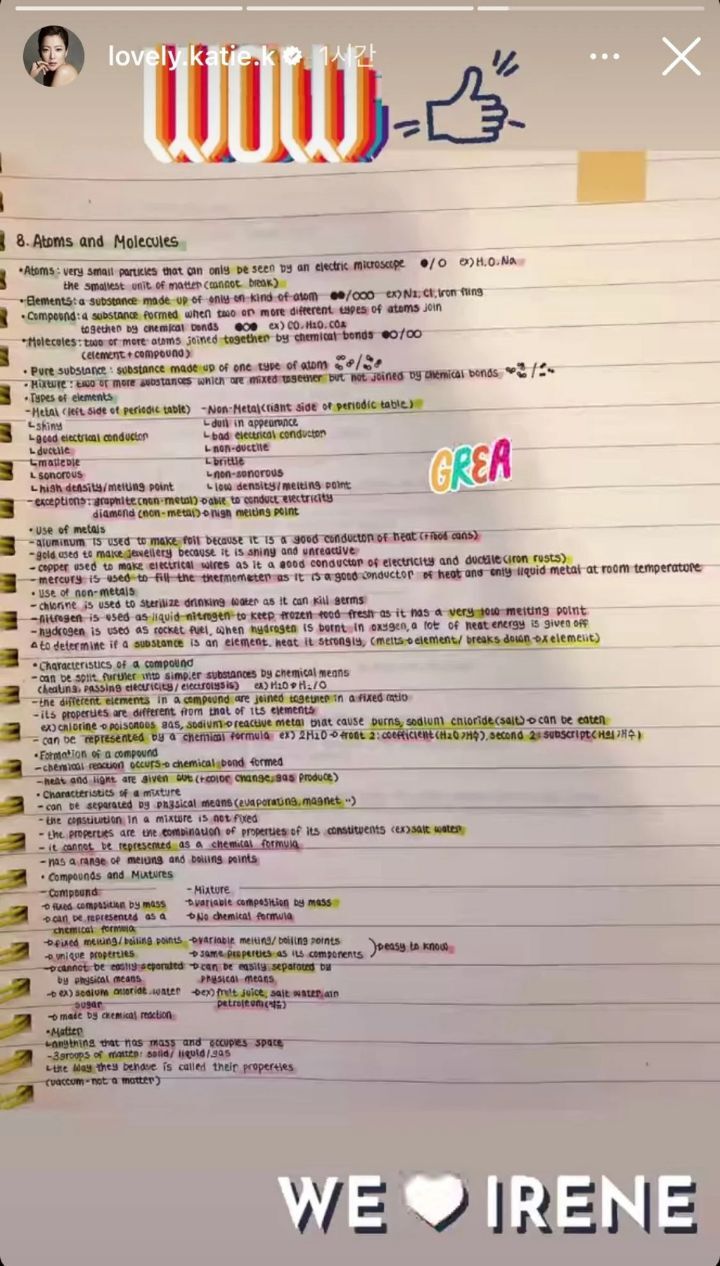 lovely.katie.k 1시간
WOW
8. Atoms and Molecules
•Atoms: very small particles that can only be seen by an electric microscope ●/○ ex)H.O.Na
the smallest unit of matter (cannot break)
•Elements: a substance made up of only on kind of atom ●●/○○○ ex)N2, Cl, Iron fling
•Compound: a substance formed when two or more different types of atoms join
together by chemical bonds ●○● ex) CO.H2O.CO2
•Molecules: two or more atoms joined together by chemical bonds ●○/○○
(element + compound)
• Pure substance: substance made up of one type of atom
• Mixture: two or more substances which are mixed together but not joined by chemical bonds
• Types of elements
-Metal (left side of periodic table) -Non-Metal (right side of periodic table)
└shiny └dull in appearance
└good electrical conductor └bad electrical conductor
└ductile └non-ductile
└malleable └brittle
└sonorous └non-sonorous
└high density/melting point └low density/melting point
-exceptions: graphite (non-metal)→able to conduct electricity
diamond (non-metal)→high melting point
GREA
• Use of metals
-aluminum is used to make foil because it is a good conductor of heat (+food cans)
-gold used to make jewellery because it is shiny and unreactive
-copper used to make electrical wires as it a good conductor of electricity and ductile (iron rusts)
-mercury is used to fill the thermometer as it is a good conductor of heat and only liquid metal at room temperature
• Use of non-metals
-chlorine is used to sterilize drinking water as it can kill germs
-nitrogen is used as liquid nitrogen to keep frozen food fresh as it has a very low melting point
-hydrogen is used as rocket fuel, when hydrogen is burnt in oxygen, a lot of heat energy is given off
△to determine if a substance is an element, heat it strongly, (melts→element/ breaks down→x element)
•Characteristics of a compound
-can be split further into simpler substances by chemical means
(heating, passing electricity/ electrolysis) ex)H2O→H2/O
-the different elements in a compound are joined together in a fixed ratio
-its properties are different from that of its elements
ex)chlorine→poisonous gas, sodium→reactive metal that cause burns, sodium chloride(salt)→can be eaten
-can be represented by a chemical formula ex) 2H2O→front 2: coefficient (H2O 개수), second 2: subscript (H의 개수)
•Formation of a compound
-chemical reaction occurs→chemical bond formed
-heat and light are given out (+color change, gas produce)
•Characteristics of a mixture
-can be separated by physical means (evaporating, magnet ..)
-the constitution in a mixture is not fixed
-the properties are the combination of properties of its constituents (ex)salt water
-it cannot be represented as a chemical formula
-has a range of melting and boiling points
• Compounds and Mixtures
-Compound -Mixture
→fixed composition by mass →variable composition by mass
→can be represented as a →No chemical formula
chemical formula
→fixed melting/boiling points →variable melting/boiling points
→unique properties →same properties as its components )→easy to know
→cannot be easily separated →can be easily separated by
by physical means physical means
→ex) sodium chloride, water →ex) fruit juice, salt water, air
sugar petroleum(석유)
→made by chemical reaction
•Matter
└anything that has mass and occupies space
-3groups of matter: solid/ liquid/ gas
└the way they behave is called their properties
(vaccum-not a matter)
WE IRENE